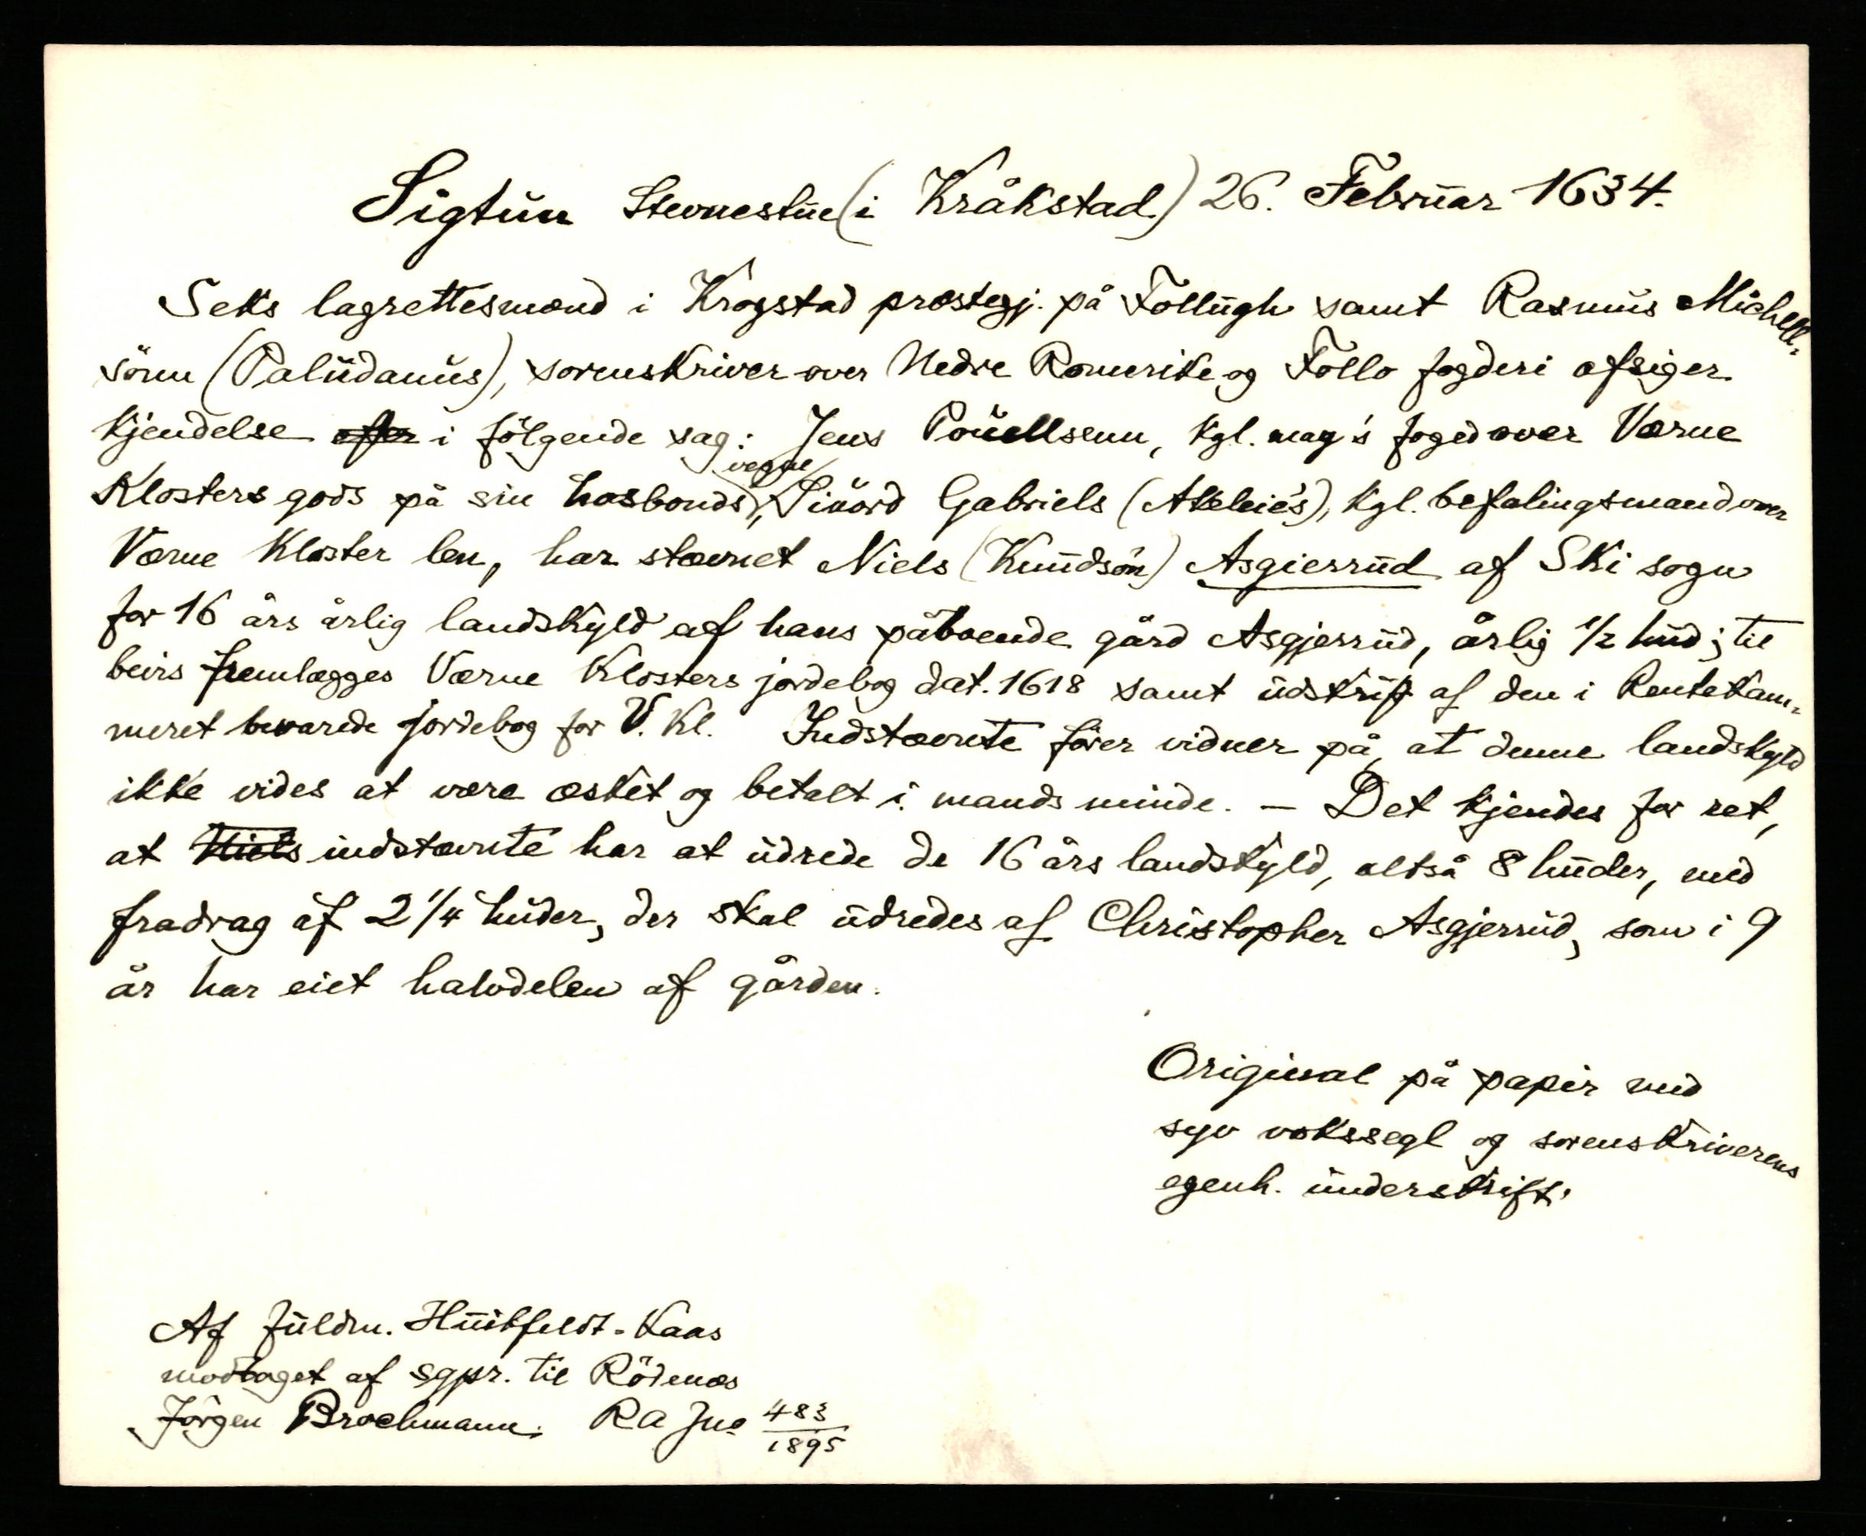 Sigtun Stevnestue (i Kråkstad) 26. Februar 1634.
Seks lagrettesmænd i Krogstad præstegj. på Follugh samt Rasmus Michell-
sönn (Paludanus), sorenskriver over Nedre Romerike og Follo fogderi afsiger
kjendelse efter i følgende sag: Jens Pouellsenn, kgl. maj's foged over Værne
Klosters gods på sin hosbonds vegne, Siuord Gabriels (Akeleie's), kgl. befalingsmand over
Værne Kloster len, har stævnet Niels (Knudsön) Asgierrud af Ski sogn
for 16 års årlig landskyld af hans påboende gård Asgjerrud, årlig 1/2 hud; til
bevis fremlægges Værne Klosters jordebog dat. 1618 samt udskrift af den i Rentekam-
meret bevarede jordebog for V. Kl. Indstævnte fører vidner på, at denne landskyld
ikke vides at være æsket og betalt i mands minde. — Det kjendes for ret,
at Niels indstævnte har at udrede de 16 års landskyld, altså 8 huder, med
fradrag af 2 1/4 huder, der skal udredes af Christopher Asgjerrud, som i 9
år har eiet halvdelen af gården.
Original på papir med
syv vokssegl og sorenskriverens
egenh. underskrift.
Af fuldm. Huitfeldt-Kaas
modtaget af sgpr. til Rödenæs
Jörgen Brochmann. RA Jno 483/1895